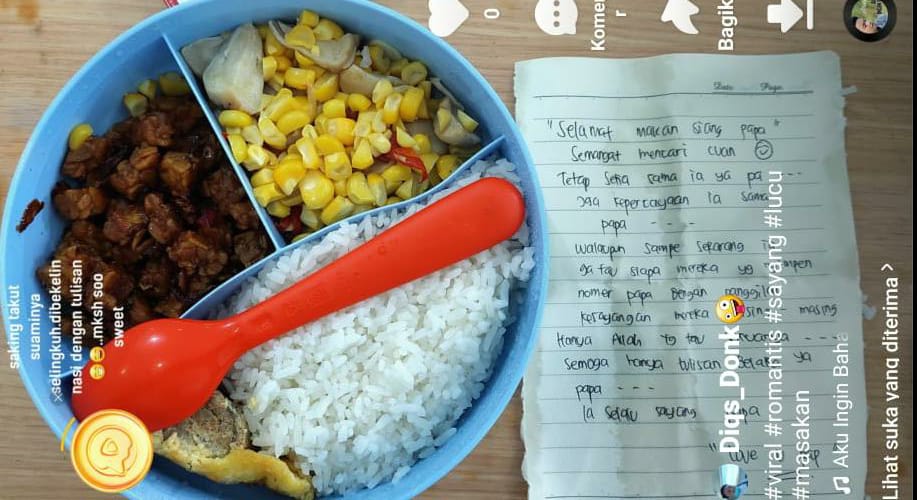 saking takut
suaminya
selingkuh dibekelin
nasi dengan tulisan
😁😁..mksh soo
sweet
0
Komen
r
Bagik
Date Page
"Selamat makan siang papa"
Semangat mencari cuan ☺
Tetap Setia sama ia ya pa ---
Jaga kepercayaan ia sama
papa ----
walaupun sampe sekarang
ga tau siapa mereka yg
nomer papa dengan
kesayangan mereka masing
Hanya Allah yg tau ---
Semoga hanya tulisan belaka ya
papa ---
Ia Selalu sayang
"Love
Diqs_Donk🤪
#viral #romantis #sayang #lucu
#masakan
♫ Aku Ingin Baha
Lihat suka yang diterima >